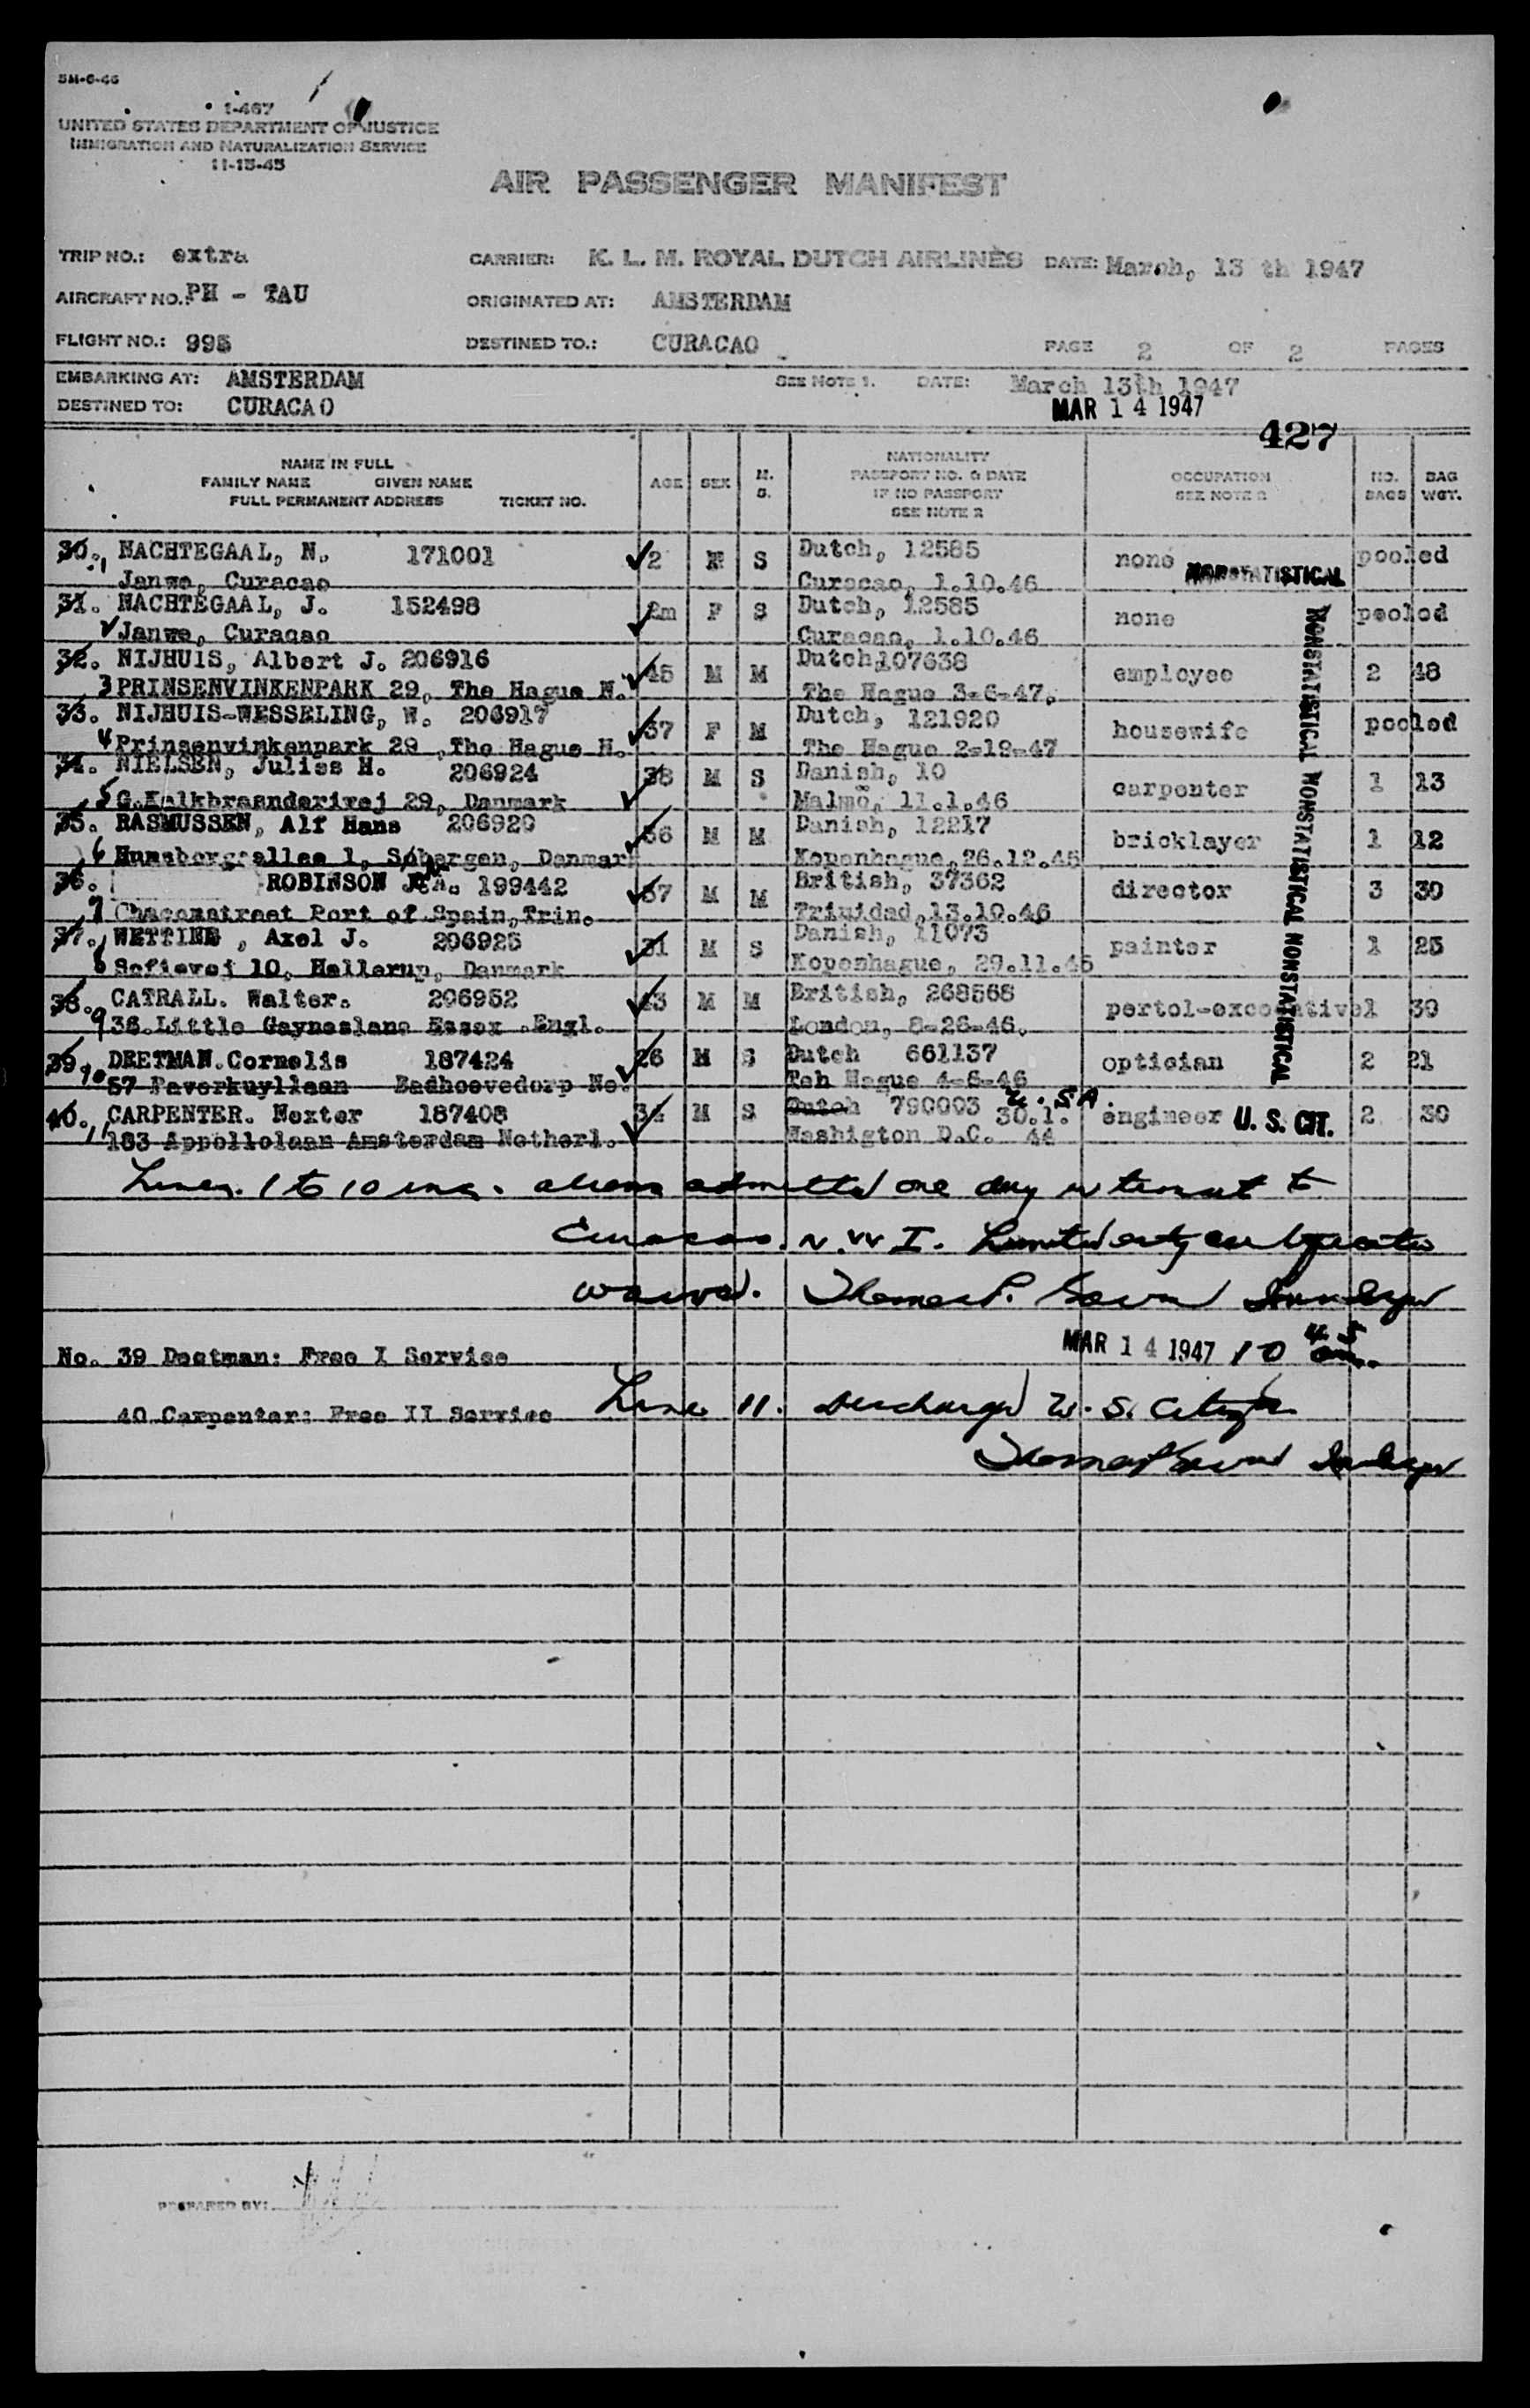 5M-6-46
I-467
UNITED STATES DEPARTMENT OF JUSTICE
IMMIGRATION AND NATURALIZATION SERVICE
11-15-45
AIR PASSENGER MANIFEST
TRIP NO.: extra CARRIER: K. L. M. ROYAL DUTCH AIRLINES DATE: March, 13 th 1947
AIRCRAFT NO.: PH - TAU ORIGINATED AT: AMSTERDAM
FLIGHT NO.: 995 DESTINED TO.: CURACAO PAGE 2 OF 2 PAGES
EMBARKING AT: AMSTERDAM SEE NOTE 1. DATE: March 13th 1947
DESTINED TO: CURACAO MAR 14 1947
427
NAME IN FULL
FAMILY NAME GIVEN NAME
FULL PERMANENT ADDRESS TICKET NO.
AGE SEX M. S.
NATIONALITY
PASSPORT NO. & DATE
IF NO PASSPORT
SEE NOTE 2
OCCUPATION
SEE NOTE 2
NO. BAGS
BAG WGT.
30. NACHTEGAAL, N. 171001 2 S Dutch, 12585 none pooled
1 Janwe, Curacao Curacao, 1.10.46 NONSTATISTICAL
31. NACHTEGAAL, J. 152498 2m F S Dutch, 12585 none pooled
Janwe, Curacao Curacao, 1.10.46
32. NIJHUIS, Albert J. 206916 45 M M Dutch, 107638 employee 2 48
3 PRINSENVINKENPARK 29, The Hague N. The Hague 3-6-47.
33. NIJHUIS-WESSELING, W. 206917 37 F M Dutch, 121920 housewife pooled
4 Prinsenvinkenpark 29, The Hague H. The Hague 2-19-47
34. NIELSEN, Julies H. 206924 38 M S Danish, 10 carpenter 1 13
5 G.Kalkbraanderivej 29, Danmark Malmö, 11.1.46
35. RASMUSSEN, Alf Hans 206920 36 M M Danish, 12217 bricklayer 1 12
6 allee 1, Danmar Kopenhague, 26.12.45
36. ROBINSON 199442 37 M M British, 37362 director 3 30
7 Chaconstreet Port of Spain, Trin. Trinidad, 13.10.46
37. WETTINE, Axel J. 206925 31 M S Danish, 11073 painter 1 25
8 Sofievej 10, Hellerup, Danmark Kopenhague, 29.11.45
38. CATRALL. Walter. 206952 43 M M British, 268568 1 30
9 36 Little Gayneslane Essex .Engl. London, 8-26-46.
39 DEETMAN.Cornelis 187424 26 M S Dutch 661137 optician 2 21
10 57 Paverkuyllaan Badhoevedorp Ne. Teh Hague 4-6-46
40. CARPENTER. Nexter 187408 34 M S Dutch 790003 U.S.A. engineer U. S. CIT. 2 30
11 183 Appollolaan Amsterdam Netherl. Washigton D.C. 30.1.44
NONSTATISTICAL NONSTATISTICAL NONSTATISTICAL
Lines. 1 to 10 inc. aliens admitted one day in transit to
Curacao. N.W I. Limited entry certificates
waived. Thomas P.
MAR 14 1947 10
No. 39 Deetman: Free I Servise
40 Carpenter: Free II Servise
Line 11. Discharged U. S. Citizen
Thomas P.
PREPARED BY: